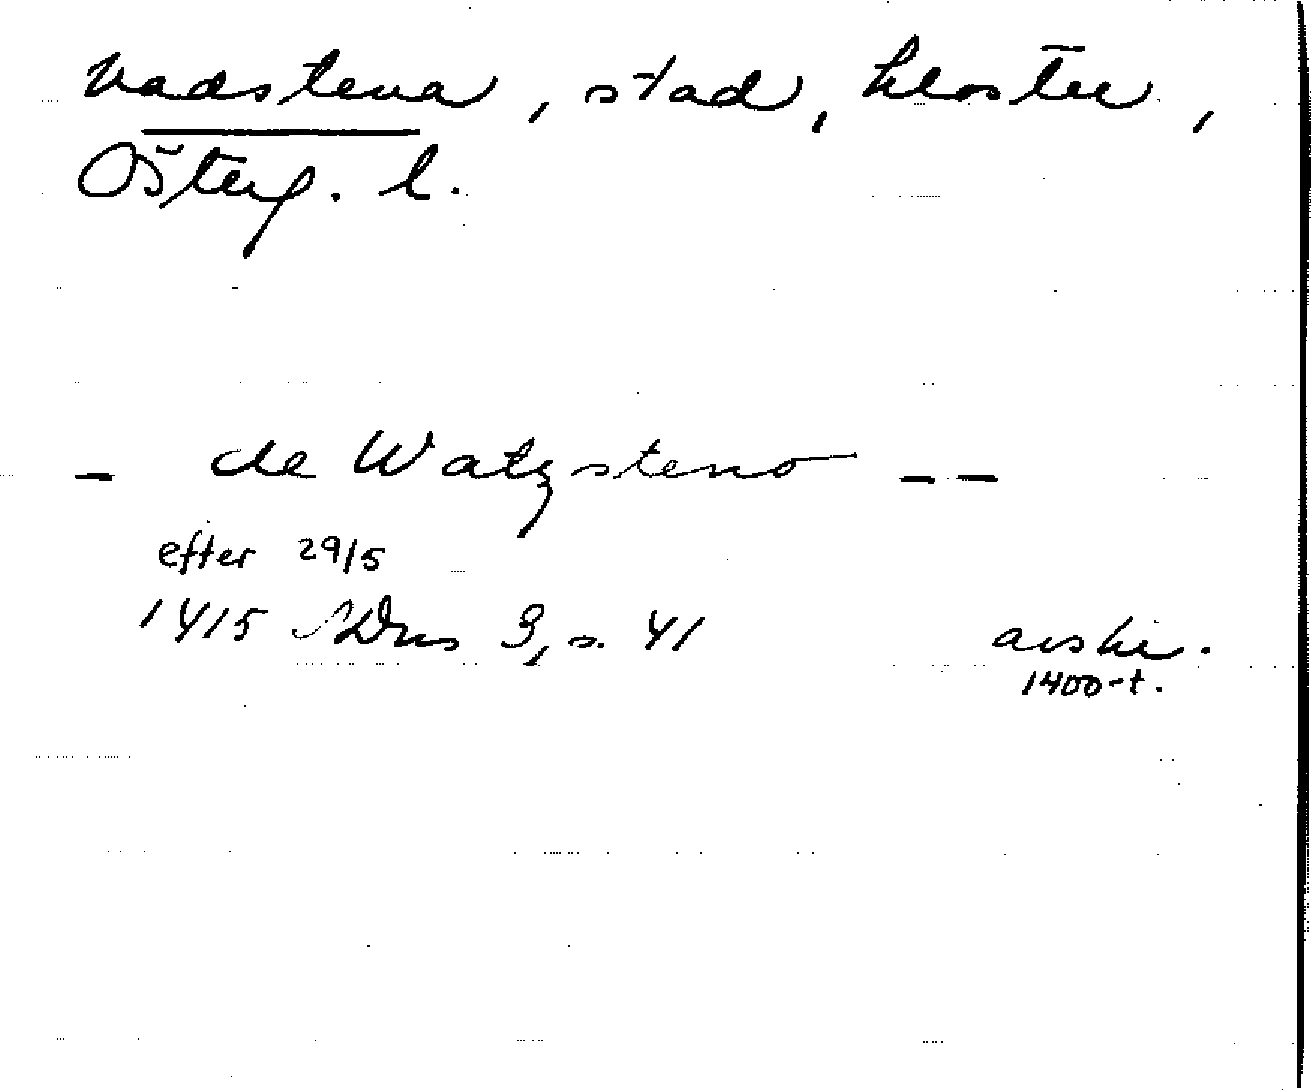 Vadstena, stad, kloster,
Österg. l.
- de Watzsteno --
efter 29/5
1415 SDns 3, s. 41 avskr.
1400-t.